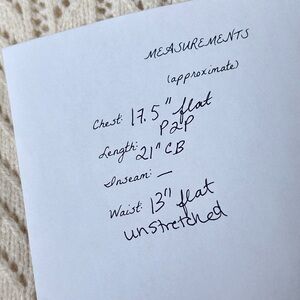 MEASUREMENTS
(approximate)
Chest: 17.5" flat
P2P
Length: 21" CB
Inseam: —
Waist: 13" flat
unstretched